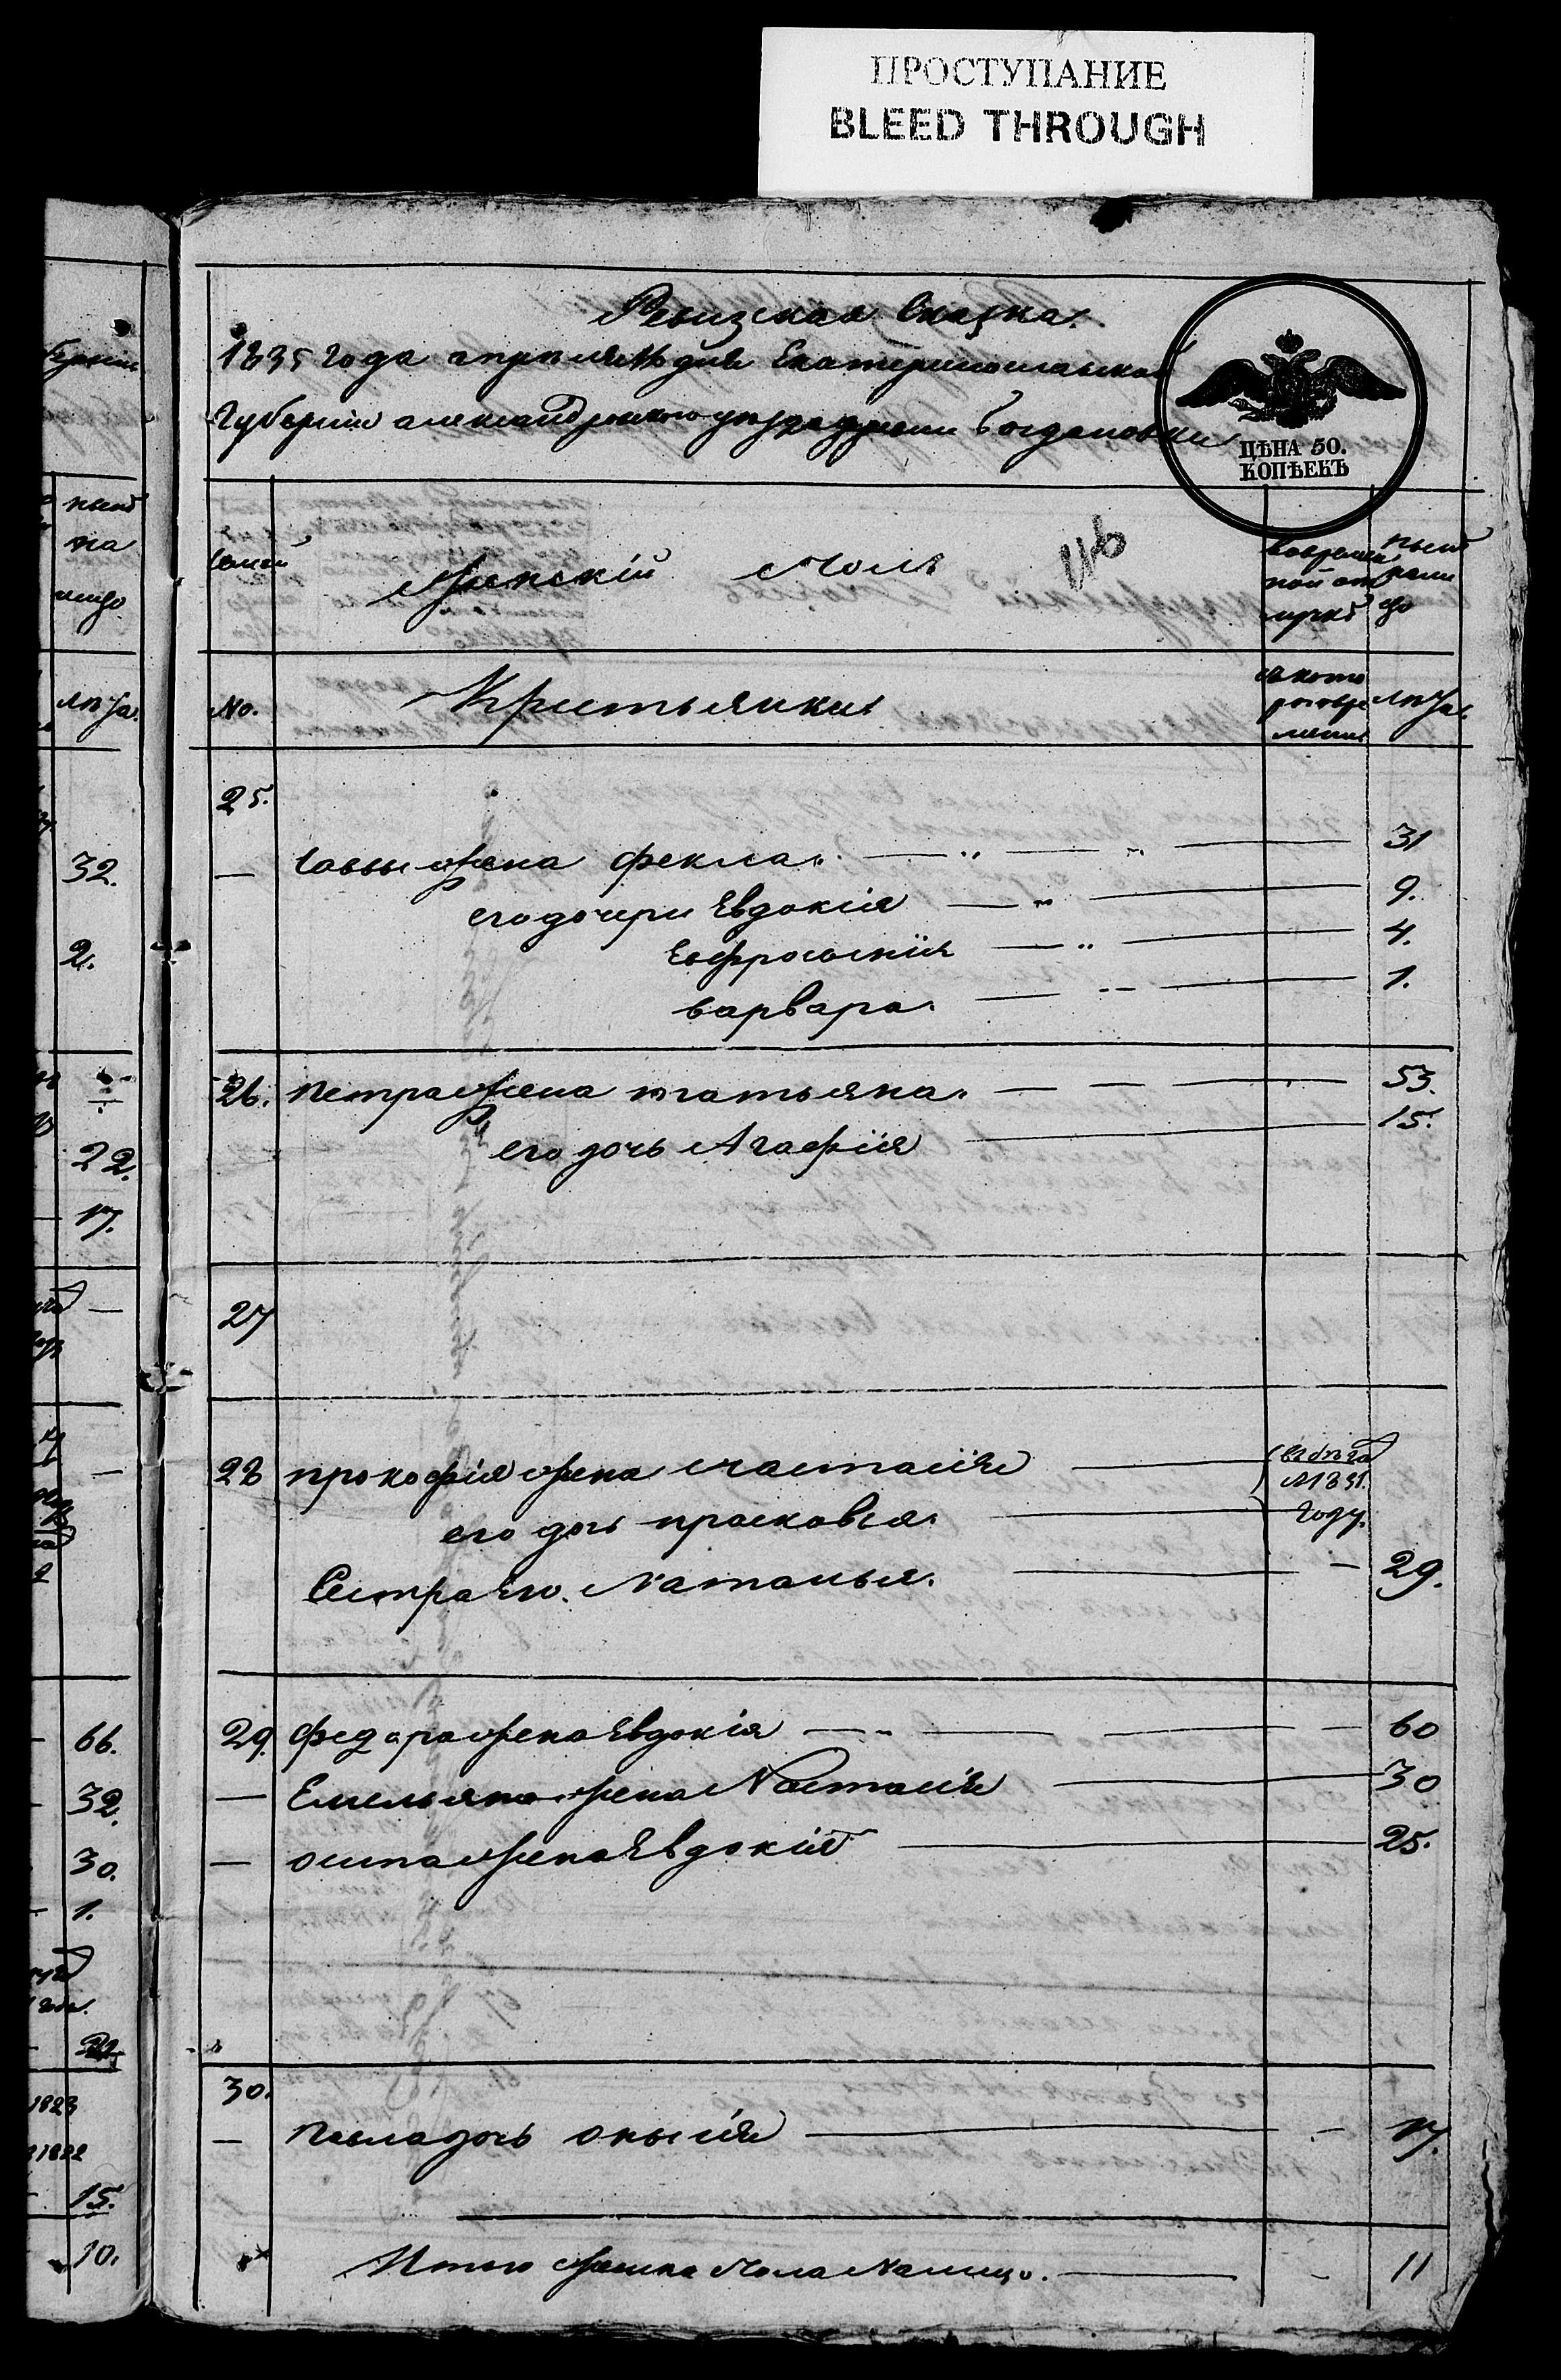 ПРОСТУПАНИЕ
BLEED THROUGH
Ревизская Сказка.
1835 года апреля дня Екатеринославской
Губернии александровского уезда деревни Богдановки
ЦѢНА 50.
КОПѢЕКЪ
116
Семьи
Женскій Полъ
вовремен
ной от
лучкѣ
нынѣ
нали
цо
No.
Крестьянки
съ кото
раго вре
мени
лѣта
25.
— Саввы жена фекла. — 31
его дочери Евдокія — 9.
Евфросинія — 4.
варвара. — 1.
26. петра жена татьяна. — 53.
его дочь Агафія — 15.
27
28 прокофія жена Настасія —
1831.
году.
его дочь прасковья. —
Сестра его. Наталья. — 29.
29. федора жена Евдокія — 60
— Емельяна жена Настасія — 30
— осипа жена Евдокія — 25.
30.
— павла дочь — 17.
Итого женска пола налицо. — 11
нынѣ
на
лицо
лѣта.
32.
2.
22.
17.
66.
32.
30.
1.
1823
1822
15.
10.